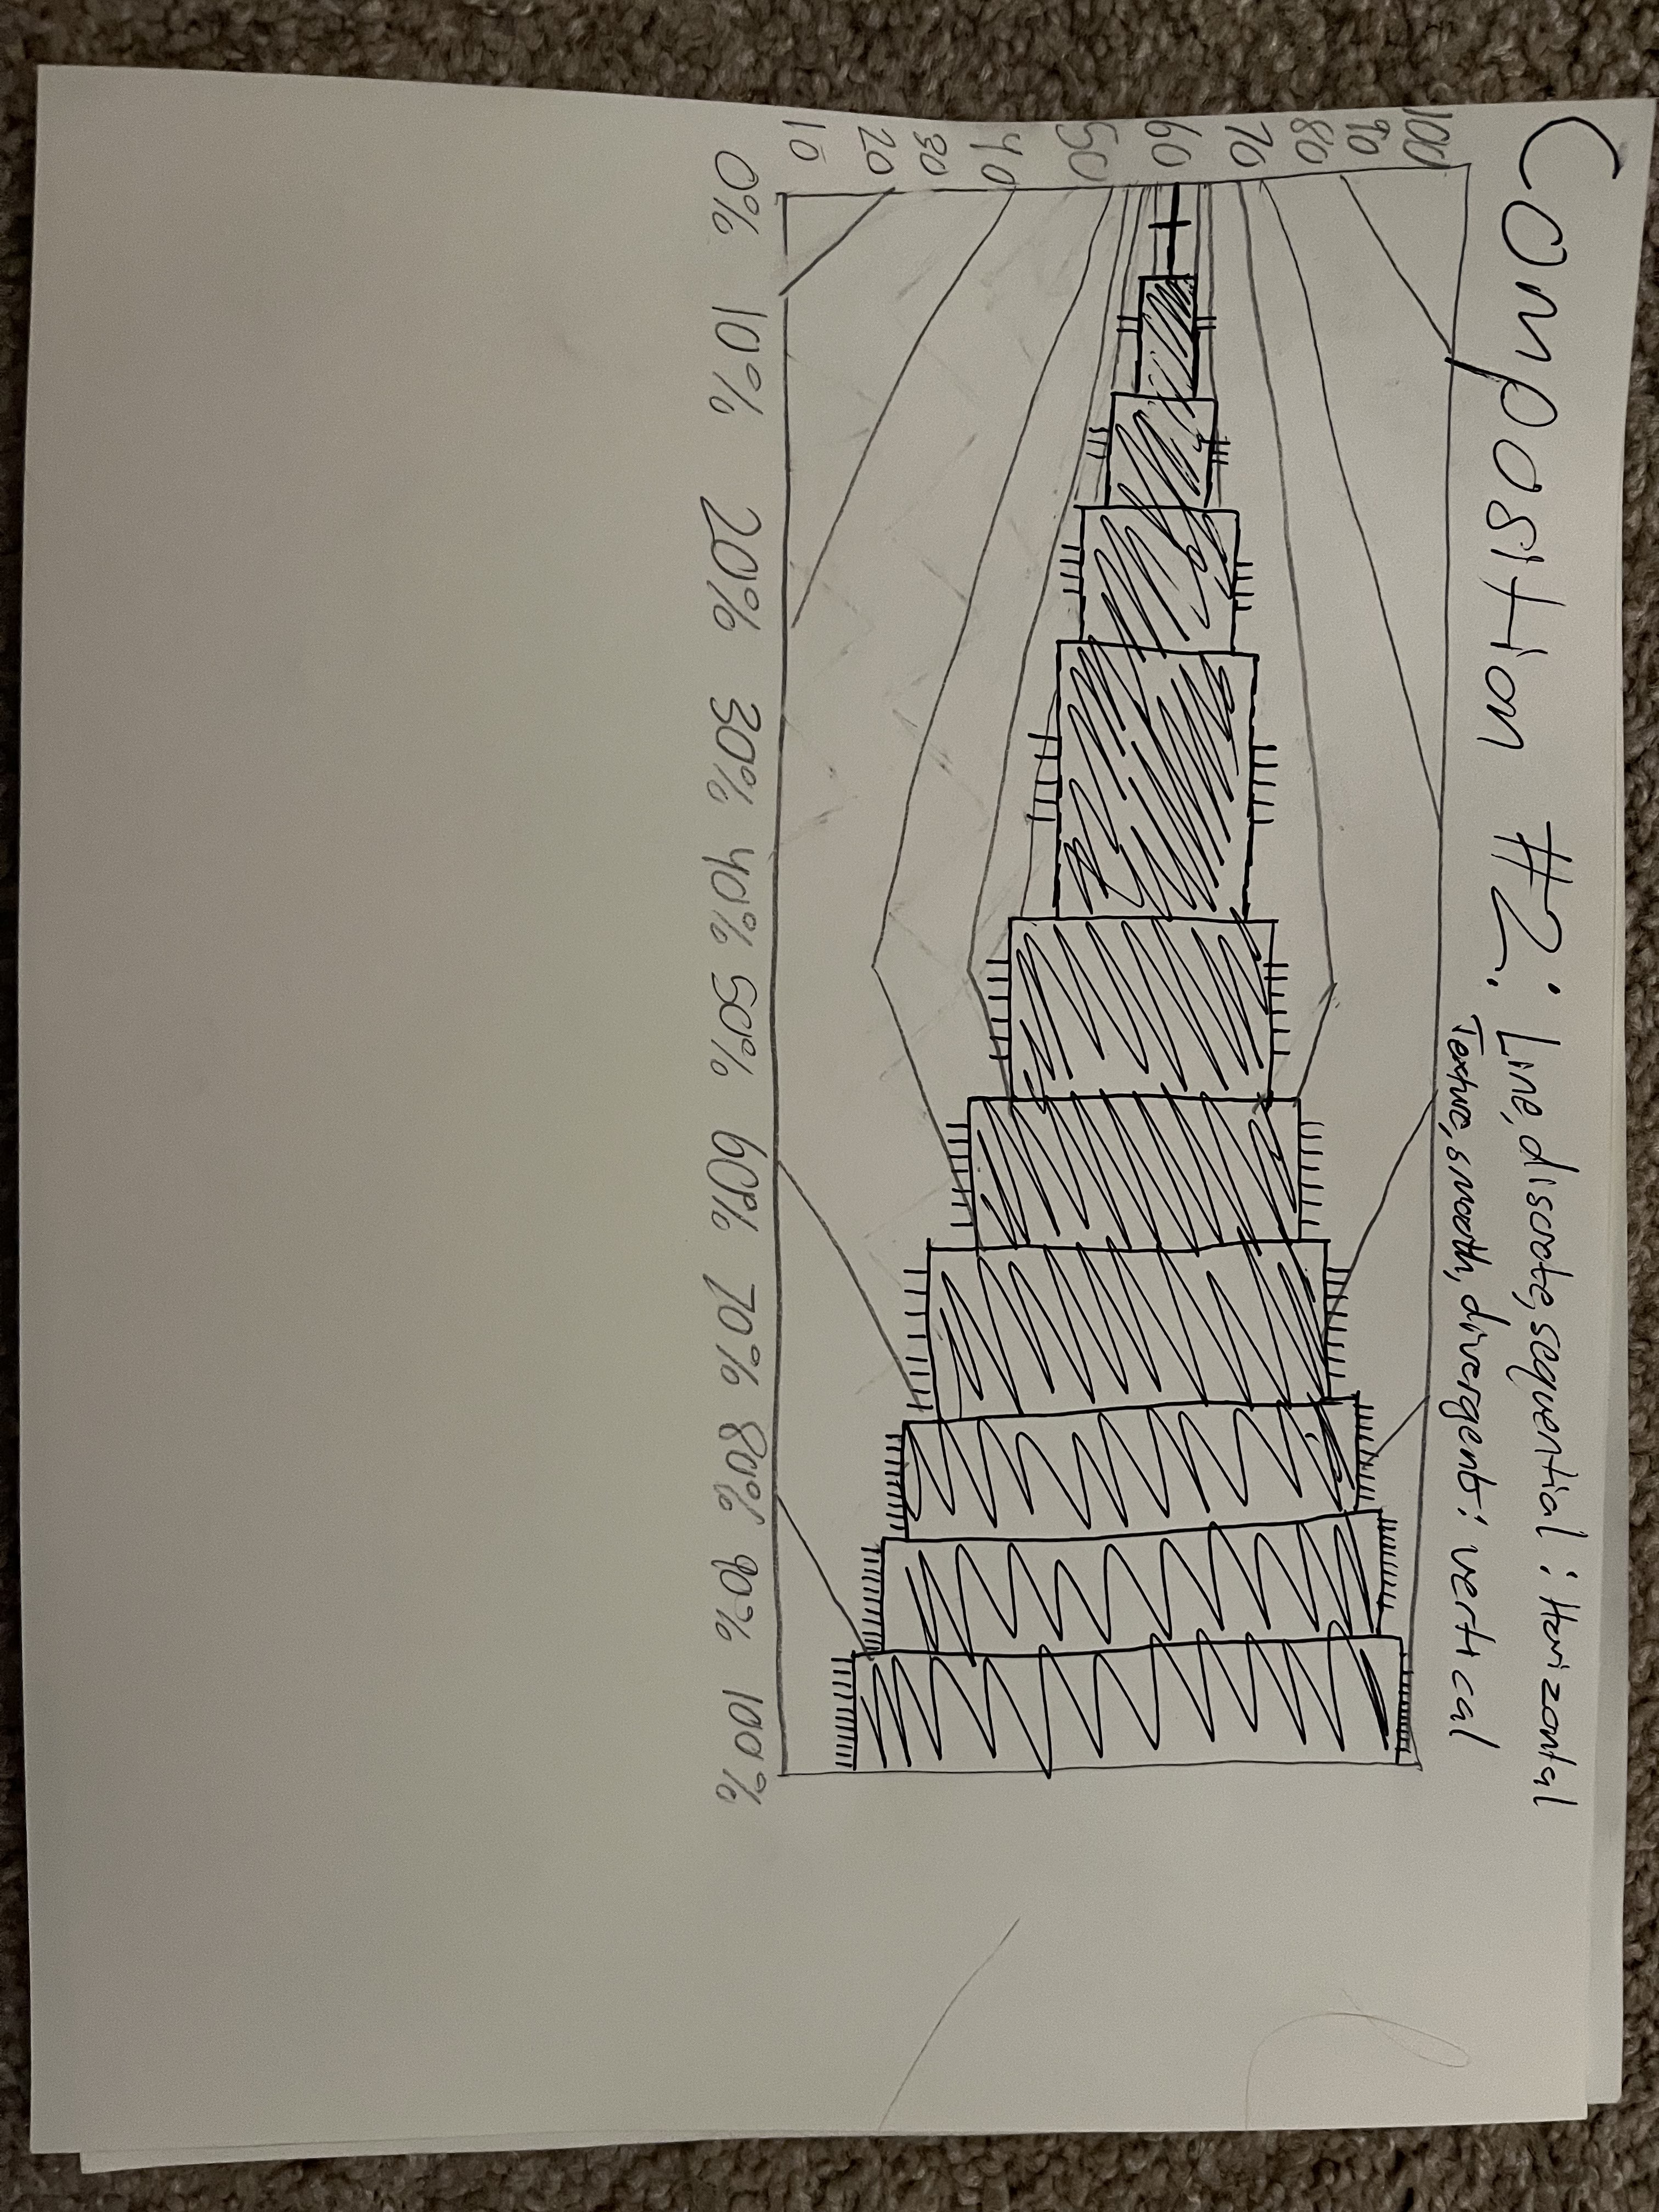 Composition #2: Line, discrete, sequential : Horizontal
Texture, smooth, divergent: vertical
100
90
80
70
60
50
40
30
20
10
0% 10% 20% 30% 40% 50% 60% 70% 80% 90% 100%